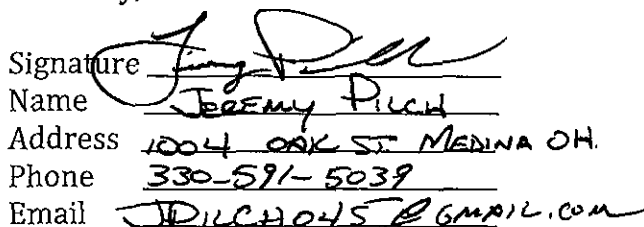 Signature
Name JEREMY PILCH
Address 1004 OAK ST MEDINA OH.
Phone 330-591-5039
Email JPILCH045@GMAIL.COM